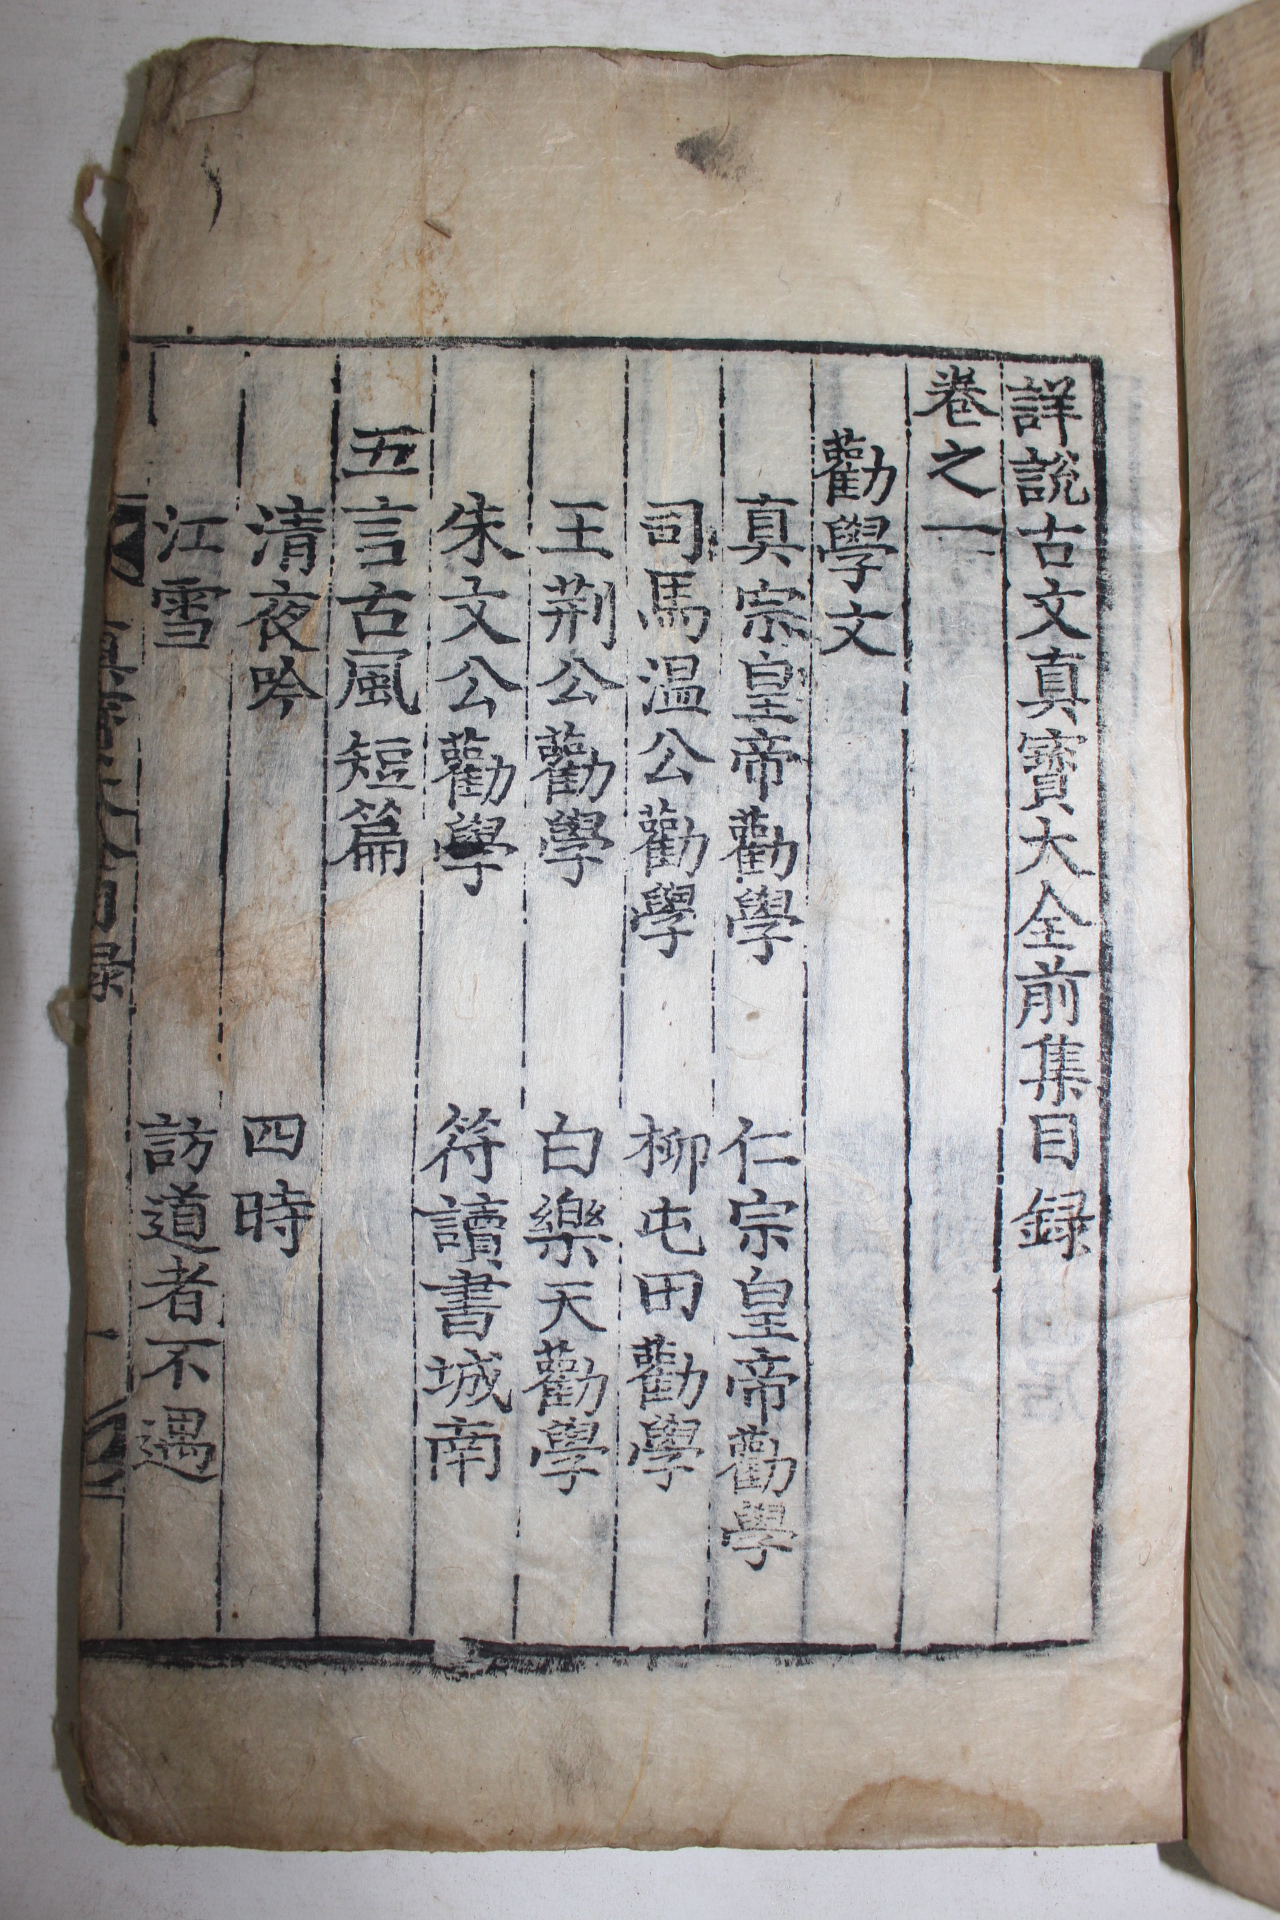 詳說古文真寶大全前集目録
卷之一
勸學文
真宗皇帝勸學 仁宗皇帝勸學
司馬温公勸學 柳屯田勸學
王荆公勸學 白樂天勸學
朱文公勸學 符讀書城南
五言古風短篇
清夜吟 四時
江雪 訪道者不遇